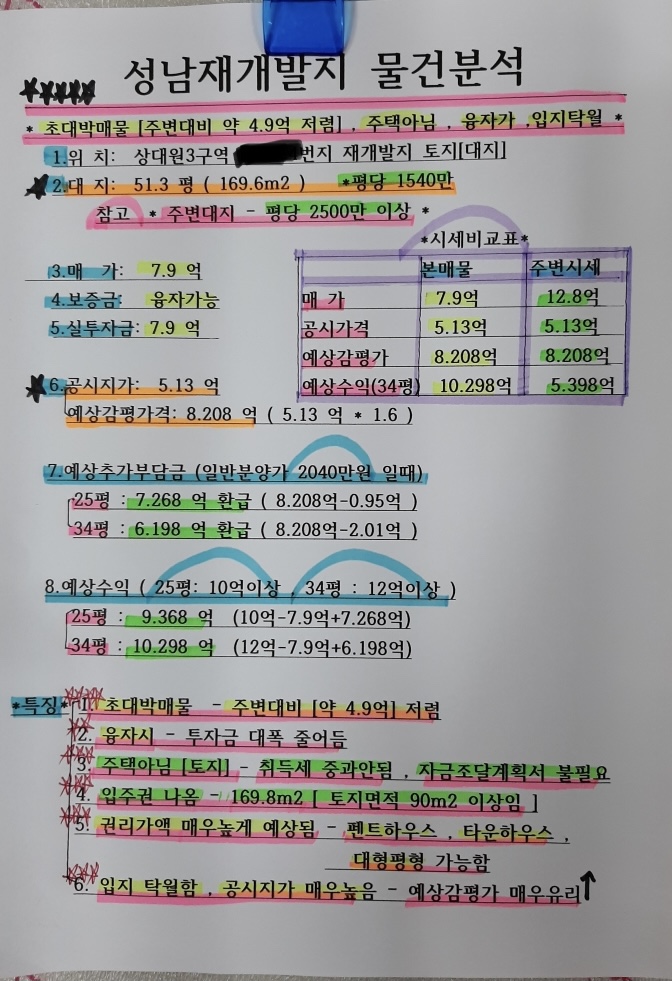 성남재개발지 물건분석
* 초대박매물 [주변대비 약 4.9억 저렴] , 주택아님 , 융자가 ,입지탁월 *
1.위 치: 상대원3구역 번지 재개발지 토지[대지]
2.대 지: 51.3 평 ( 169.6m2 ) *평당 1540만
참고 * 주변대지 - 평당 2500만 이상 *
*시세비교표*
본매물 주변시세
매 가 7.9억 12.8억
공시가격 5.13억 5.13억
예상감평가 8.208억 8.208억
예상수익(34평) 10.298억 5.398억
3.매 가: 7.9 억
4.보증금: 융자가능
5.실투자금: 7.9 억
6.공시지가: 5.13 억
예상감평가격: 8.208 억 ( 5.13 억 * 1.6 )
7.예상추가부담금 (일반분양가 2040만원 일때)
25평 : 7.268 억 환급 ( 8.208억-0.95억 )
34평 : 6.198 억 환급 ( 8.208억-2.01억 )
8.예상수익 ( 25평: 10억이상 , 34평 : 12억이상 )
25평 : 9.368 억 (10억-7.9억+7.268억)
34평 : 10.298 억 (12억-7.9억+6.198억)
*특징*
1. 초대박매물 - 주변대비 [약 4.9억] 저렴
2. 융자시 - 투자금 대폭 줄어듬
3. 주택아님 [토지] - 취득세 중과안됨 , 자금조달계획서 불필요
4. 입주권 나옴 - 169.8m2 [ 토지면적 90m2 이상임 ]
5. 권리가액 매우높게 예상됨 - 펜트하우스 , 타운하우스 ,
대형평형 가능함
6. 입지 탁월함 , 공시지가 매우높음 - 예상감평가 매우유리↑